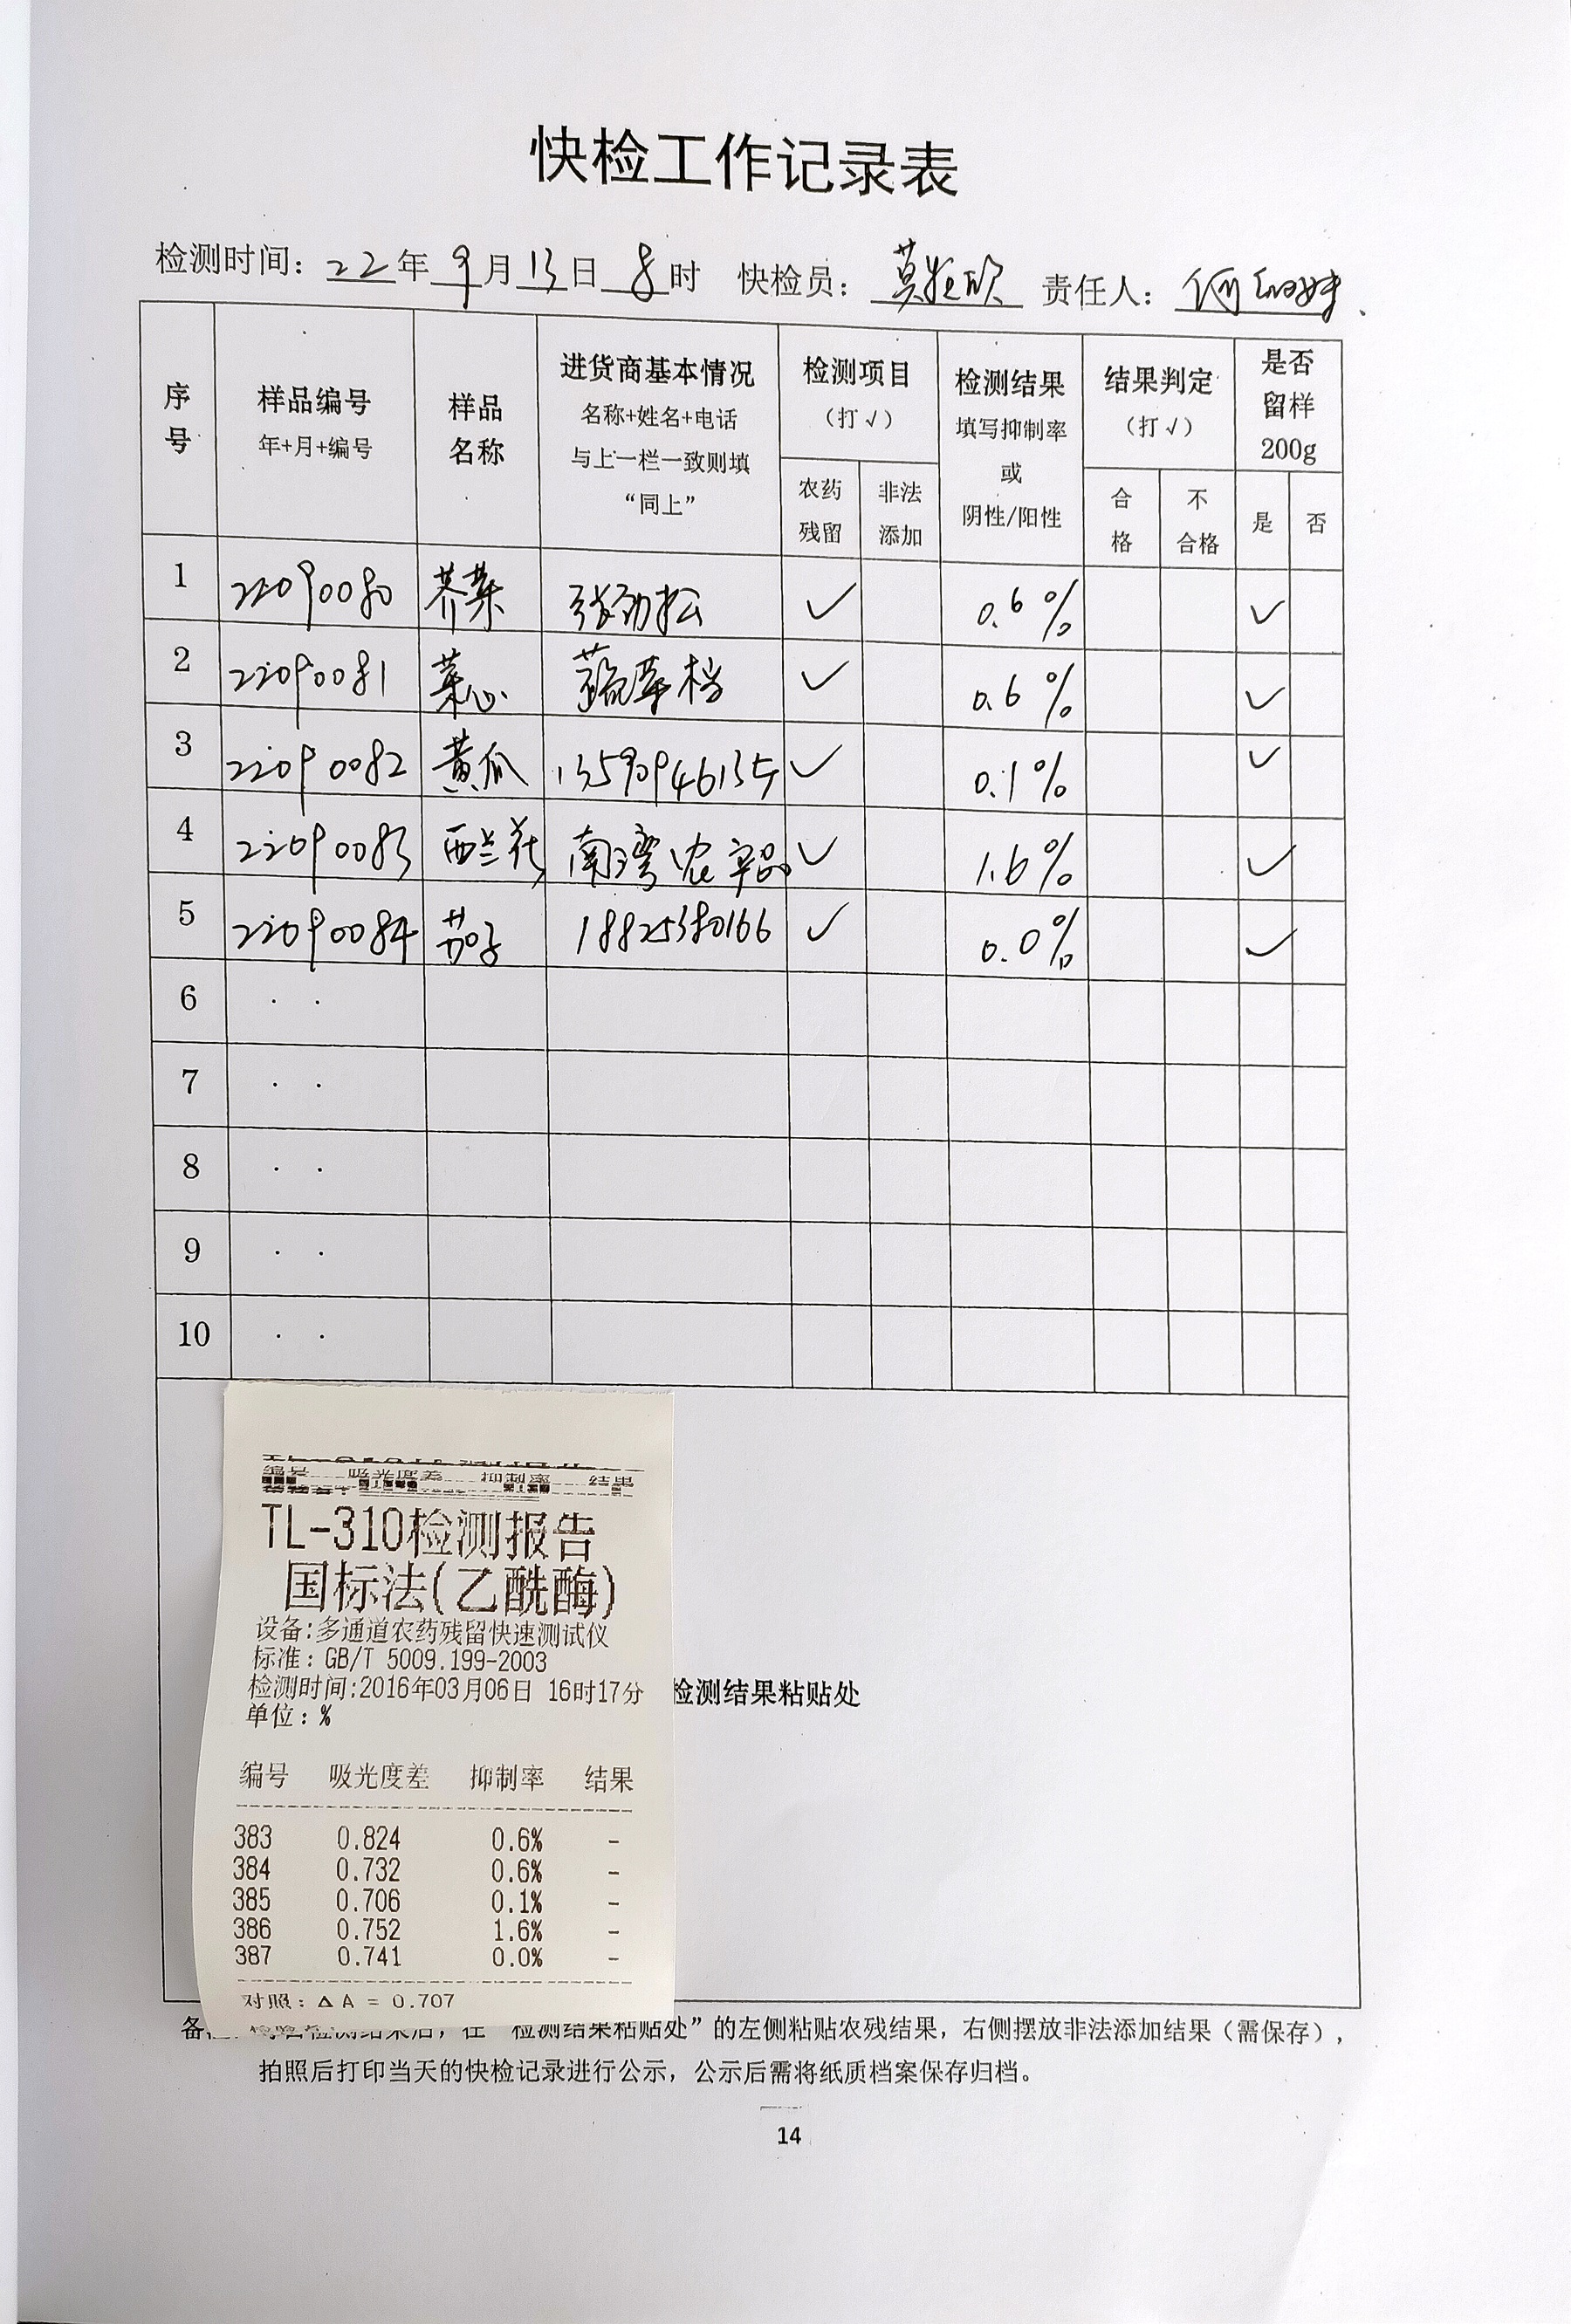 快检工作记录表
检测时间：22年9月13日8时 快检员： 责任人：
序号 样品编号 年+月+编号 样品名称 进货商基本情况 名称+姓名+电话 与上一栏一致则填 “同上” 检测项目 （打√） 农药残留 非法添加 检测结果 填写抑制率 或 阴性/阳性 结果判定 （打√） 合格 不合格 是否留样 200g 是 否
1 22090080 芥菜 张劲松 ✓ 0.6% ✓
2 22090081 菜心 ✓ 0.6% ✓
3 22090082 黄瓜 ✓ 0.1% ✓
4 22090083 西兰花 南湾农产品 ✓ 1.6% ✓
5 22090084 茄子 18825380166 ✓ 0.0% ✓
6
7
8
9
10
编号 吸光度差 抑制率 结果
TL-310检测报告
国标法(乙酰酶)
设备:多通道农药残留快速测试仪
标准：GB/T 5009.199-2003
检测时间:2016年03月06日 16时17分
检测结果粘贴处
单位：%
编号 吸光度差 抑制率 结果
383 0.824 0.6% -
384 0.732 0.6% -
385 0.706 0.1% -
386 0.752 1.6% -
387 0.741 0.0% -
对照：△A = 0.707
检测结果后，在“检测结果粘贴处”的左侧粘贴农残结果，右侧摆放非法添加结果（需保存），
拍照后打印当天的快检记录进行公示，公示后需将纸质档案保存归档。
14